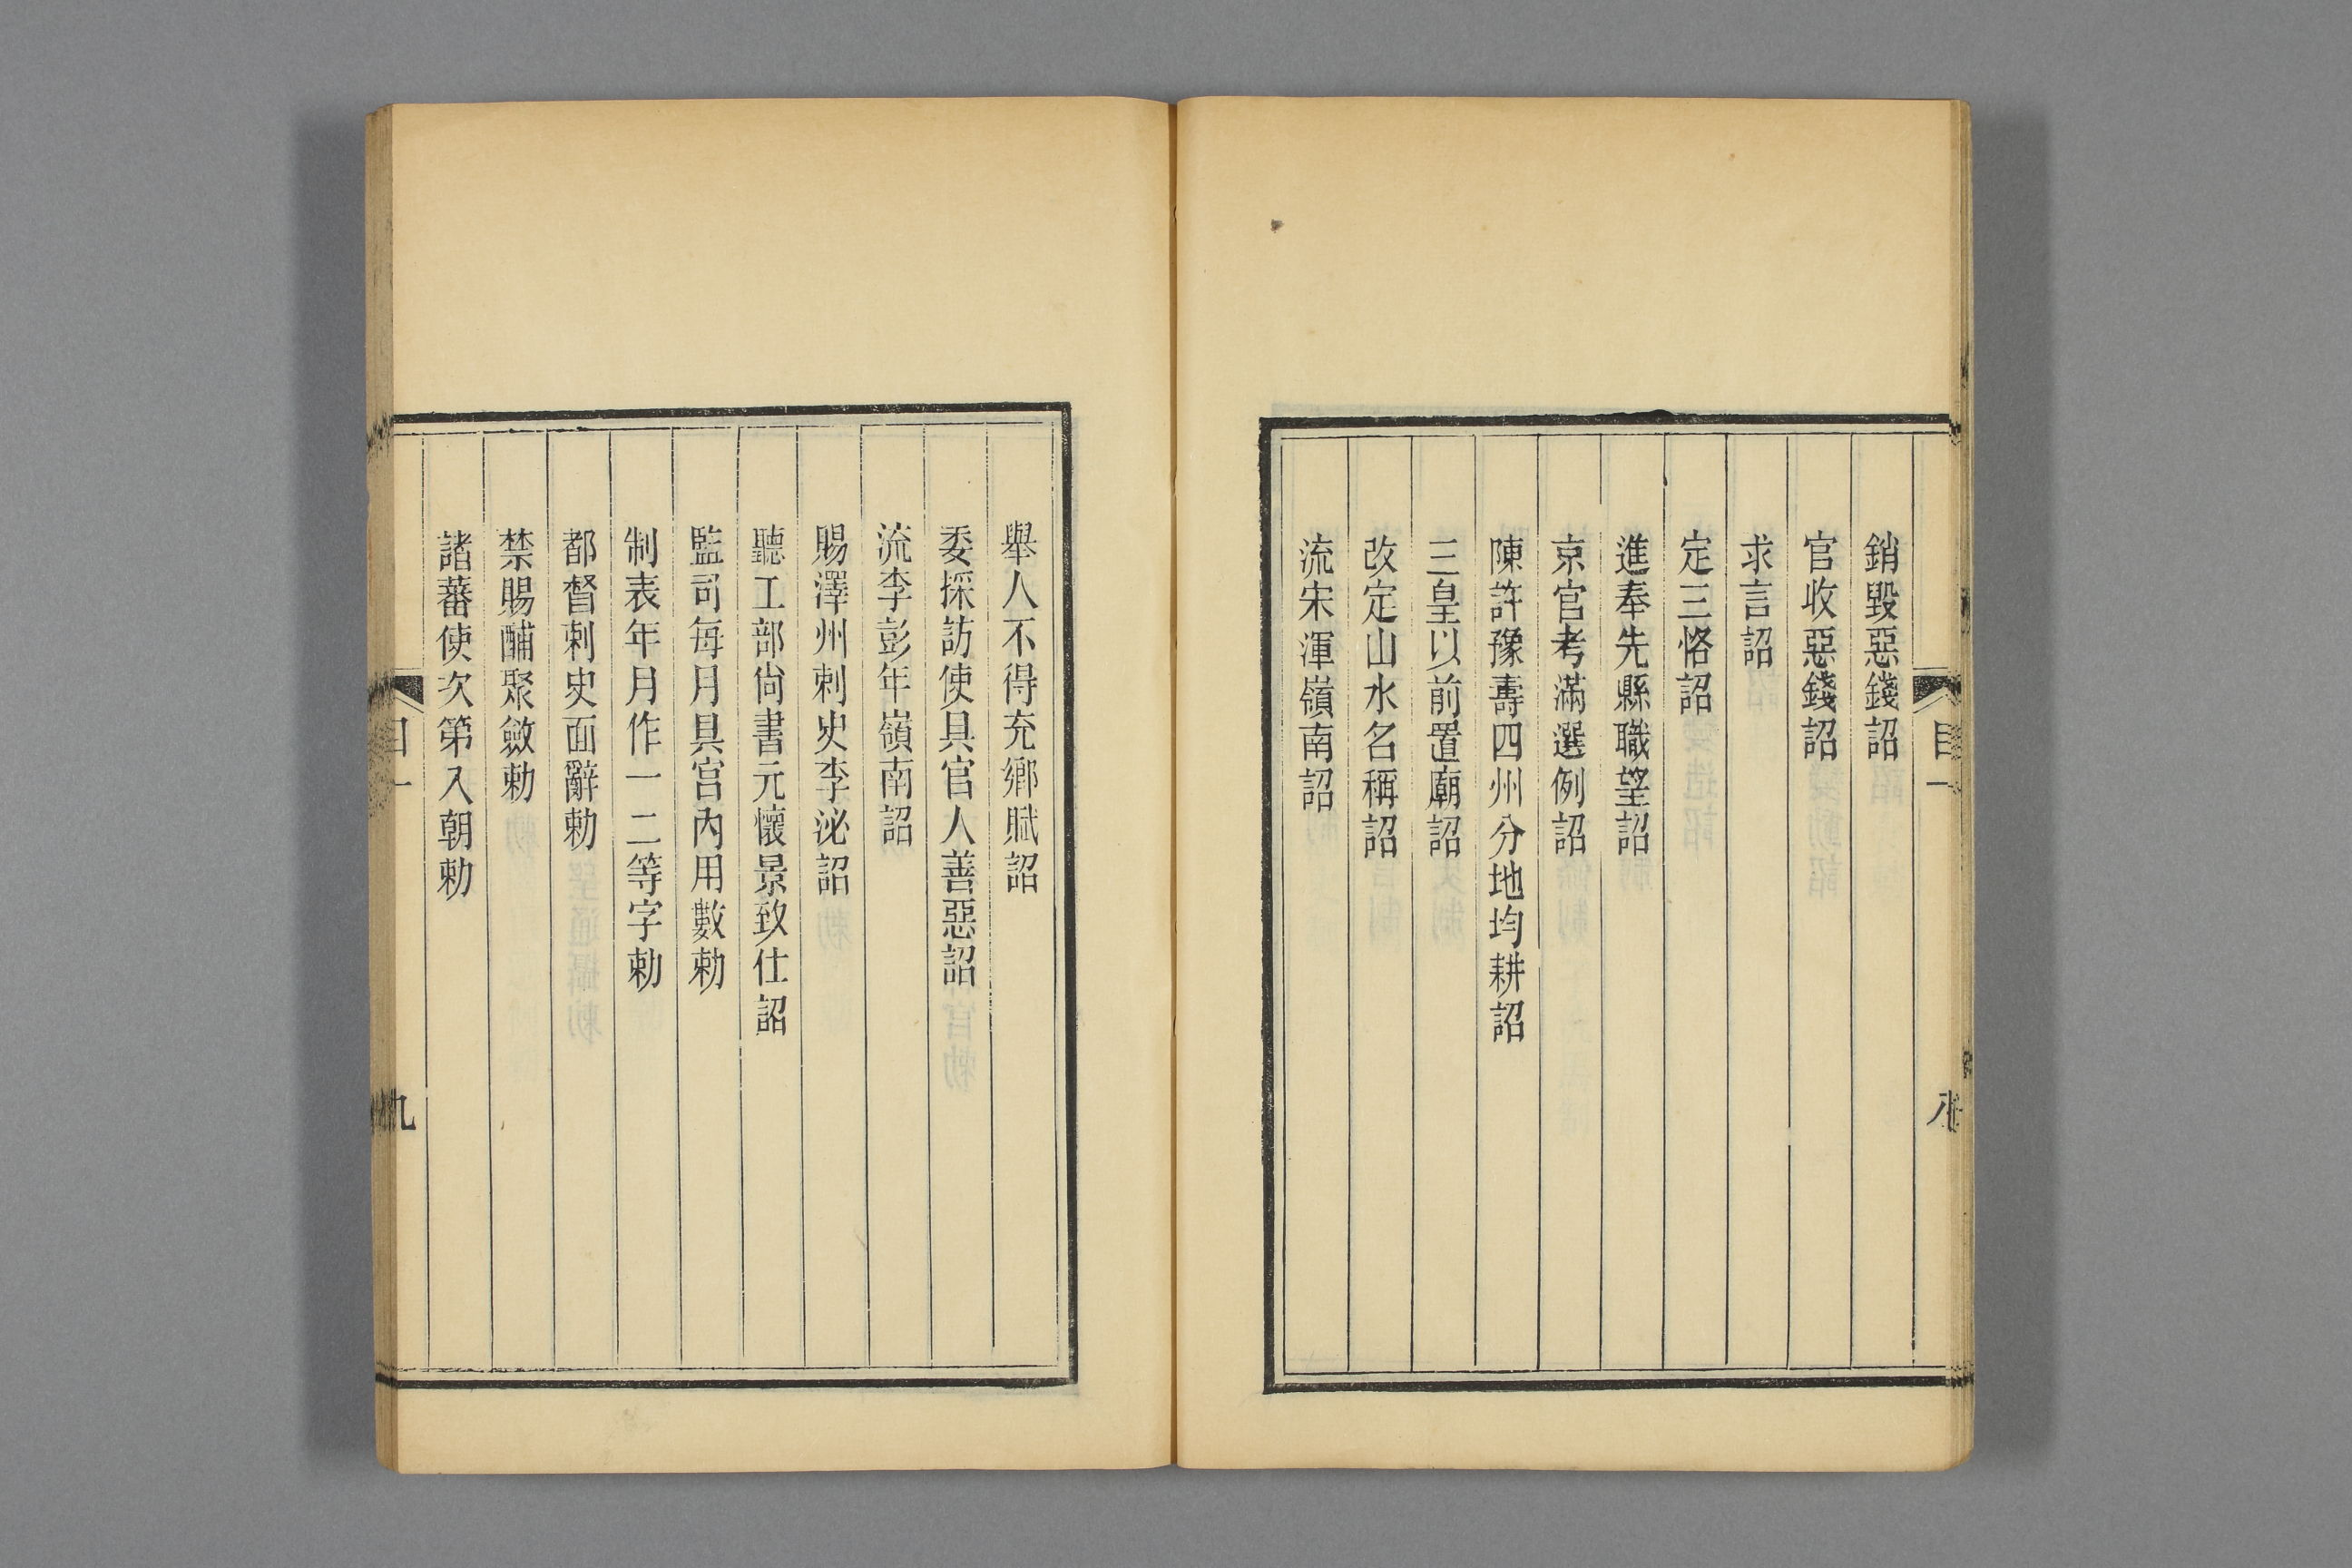 銷毀惡錢詔
官收惡錢詔
求言詔
定三恪詔
進奉先縣職望詔
京官考滿選例詔
陳許豫壽四州分地均耕詔
三皇以前置廟詔
改定山水名稱詔
流宋渾嶺南詔
舉人不得充鄉賦詔
委採訪使具官人善惡詔
流李彭年嶺南詔
賜澤州刺史李泌詔
聽工部尙書元懷景致仕詔
監司每月具宮內用數勅
制表年月作一二等字勅
都督刺史面辭勅
禁賜酺聚斂勅
諸蕃使次第入朝勅
目一
九